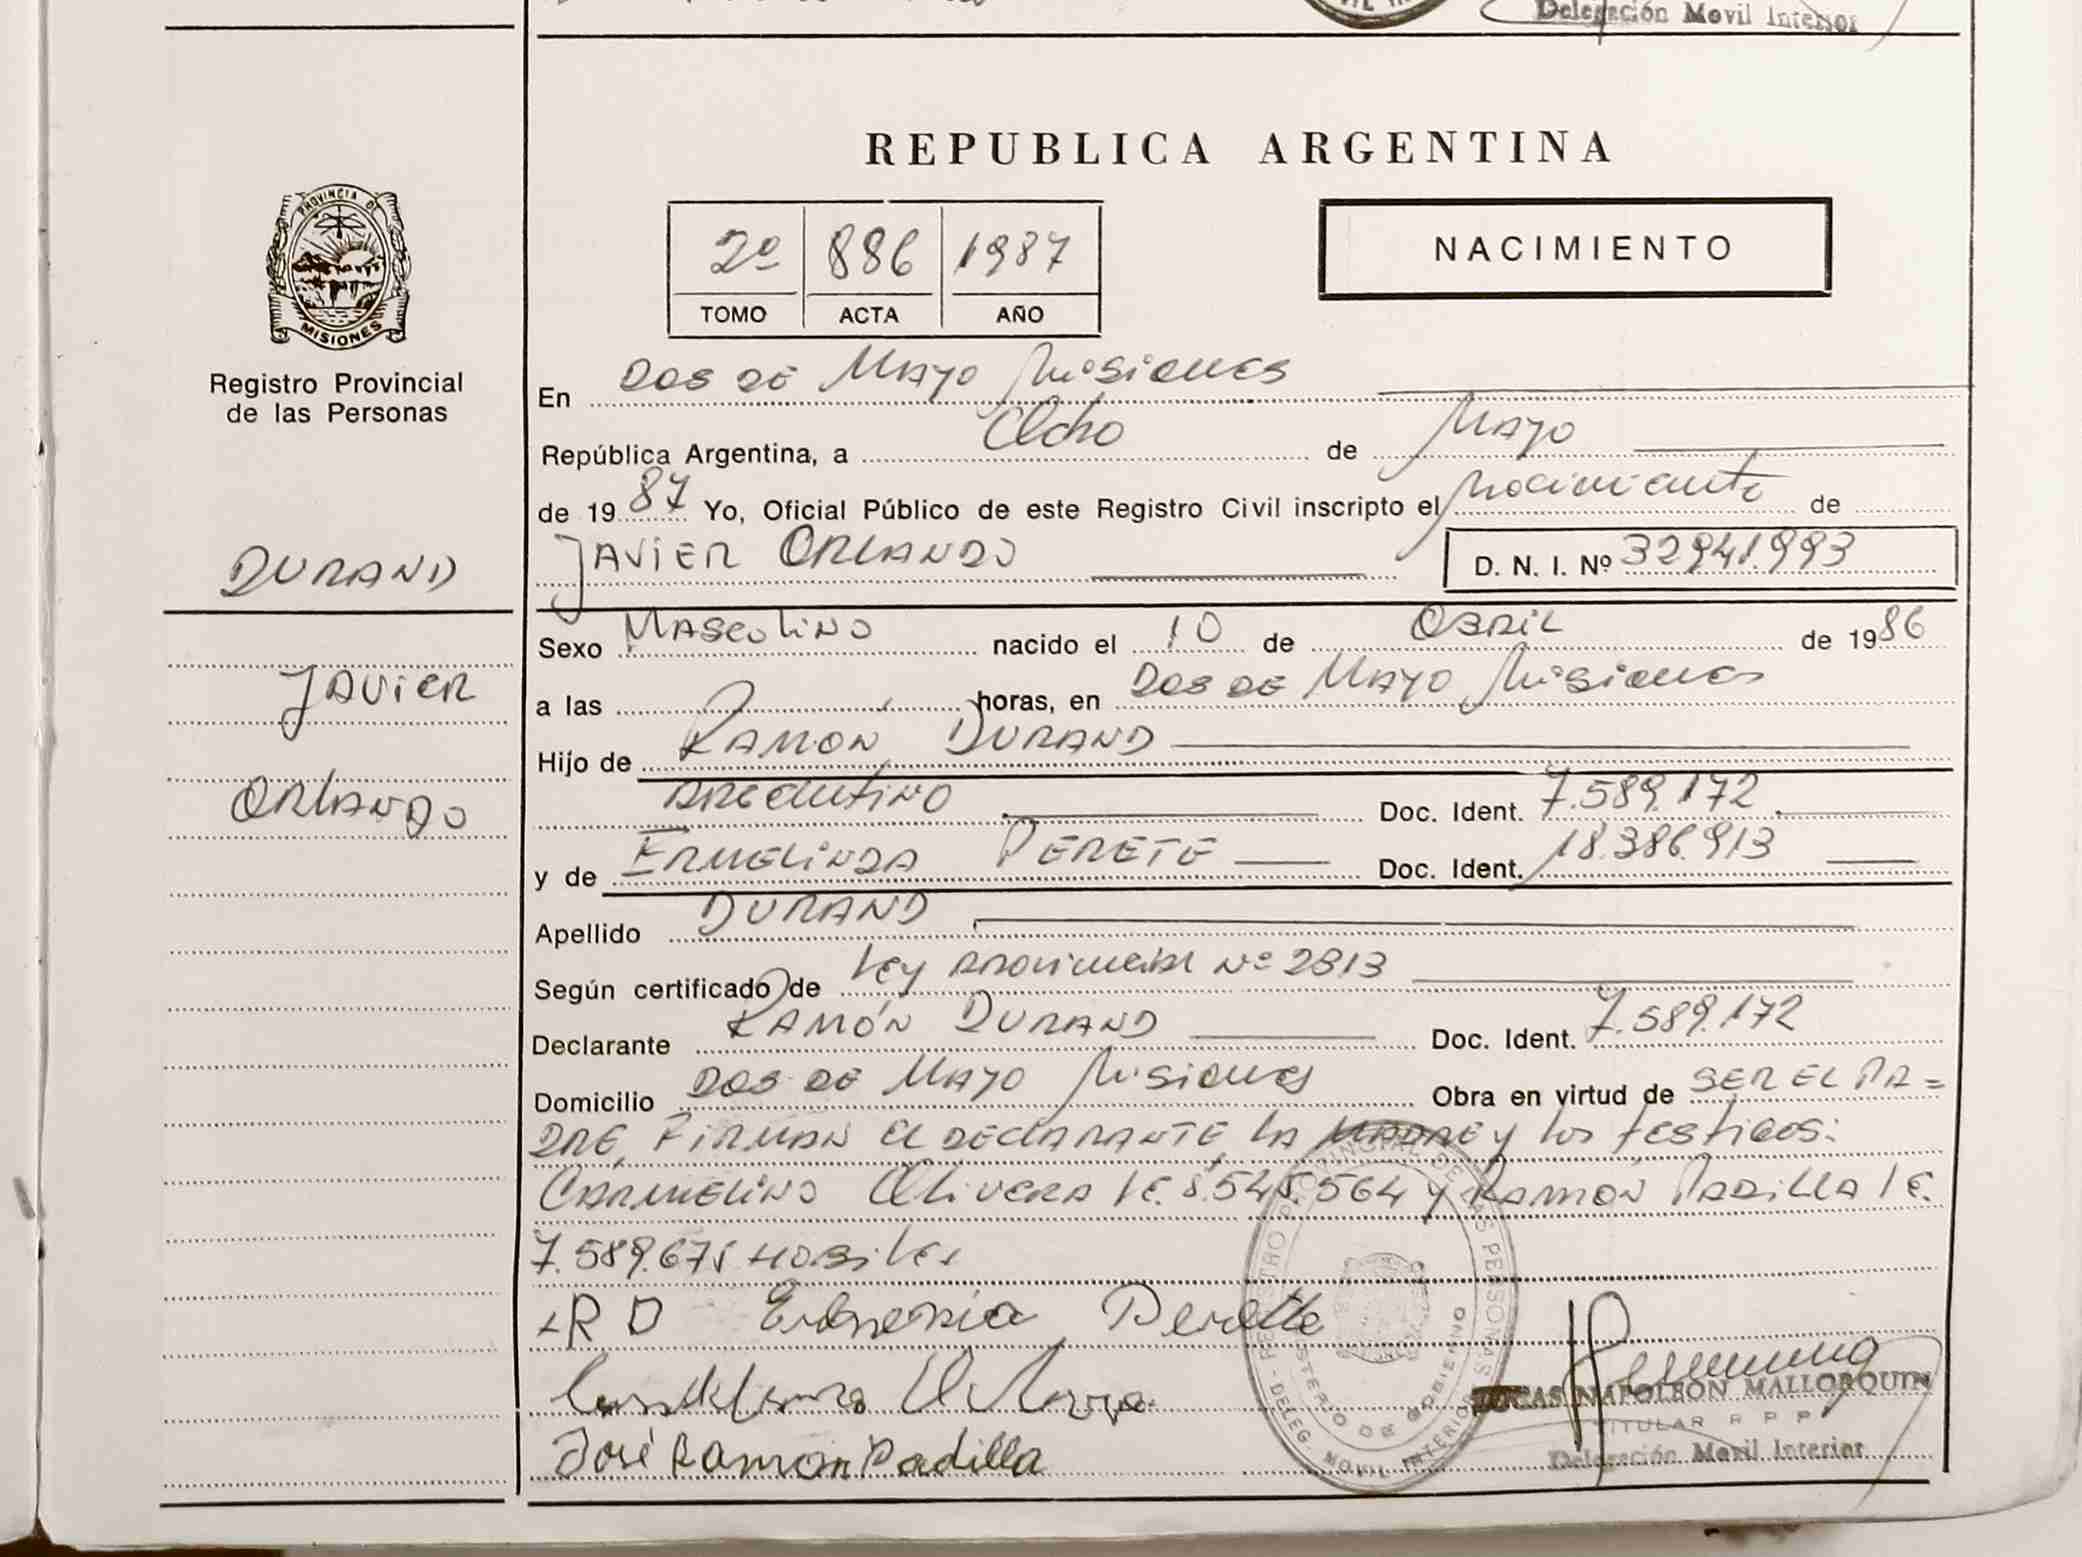 Delegación Movil Interior
REPUBLICA ARGENTINA
PROVINCIA DE
MISIONES
Registro Provincial
de las Personas
2º 886 1987
TOMO ACTA AÑO
NACIMIENTO
En Dos de Mayo Misiones
República Argentina, a Ocho de Mayo
de 1987 Yo, Oficial Público de este Registro Civil inscripto el Nacimiento de
DURAND
JAVIER ORLANDO D. N. I. Nº 32941.993
Sexo Masculino nacido el 10 de Abril de 1986
JAVIER
a las horas, en Dos de Mayo Misiones
Hijo de RAMÓN DURAND
ORLANDO
ARGENTINO Doc. Ident. 7.589.172
y de ERMELINDA PERETE Doc. Ident. 18.386.913
Apellido DURAND
Según certificado de Ley Provincial Nº 2813
Declarante RAMÓN DURAND Doc. Ident. 7.589.172
Domicilio Dos de Mayo Misiones Obra en virtud de SER EL PA=
DRE, FIRMAN EL DECLARANTE, LA MADRE y los testigos:
CARMELINO OLIVERA L.E. 8.545.564 y RAMÓN PADILLA L.E.
7.589.675 HABILES
RD Perette
José Ramón Padilla
REGISTRO PROVINCIAL DE LAS PERSONAS
MINISTERIO DE GOBIERNO
DELEG. MOVIL INTERIOR
LUCAS NAPOLEON MALLORQUIN
TITULAR R P P
Delegación Movil Interior